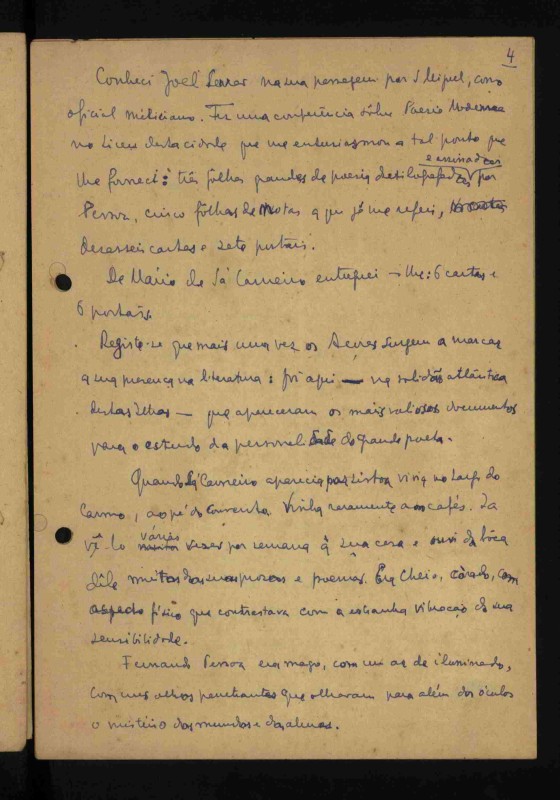 4
Conheci Joel Serrão na sua passagem por S. Miguel, como
oficial miliciano. Fez uma conferência sôbre Poesia Moderna
no Liceu desta cidade que me entusiasmou a tal ponto que
e assinadas
lhe forneci: três fôlhas grandes de poesia dactilografadas por
Pessoa, cinco fôlhas de notas a que já me referi,
dezasseis cartas e sete postais.
De Mário de Sá Carneiro entreguei-lhe: 6 cartas e
6 postais.
Registe-se que mais uma vez os Açores surgem a marcar
a sua presença na literatura: foi aqui — na solidão atlântica
destas Ilhas — que apareceram os mais valiosos documentos
para o estudo da personalidade do grande poeta.
Quando Sá Carneiro aparecia por Lisboa vivia no Largo do
Carmo, ao pé do Convento. Vinha raramente aos cafés. Ia
várias
vê-lo muitas vezes por semana à sua casa e ouvi da bôca
dêle muitas das suas prosas e poemas. Era cheio, corado, com
aspecto físico que contrastava com a estranha vibração da sua
sensibilidade.
Fernando Pessoa era magro, com um ar de iluminado,
com uns olhos penetrantes que olhavam para além dos óculos
o mistério dos mundos e das almas.